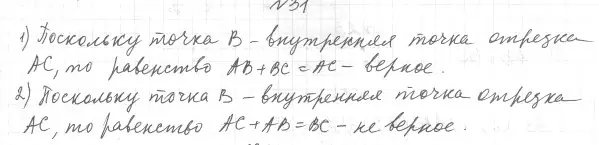 №31
1) Поскольку точка B - внутренняя точка отрезка
AC, то равенство AB+BC=AC - верное.
2) Поскольку точка B - внутренняя точка отрезка
AC, то равенство AC+AB=BC - не верное.